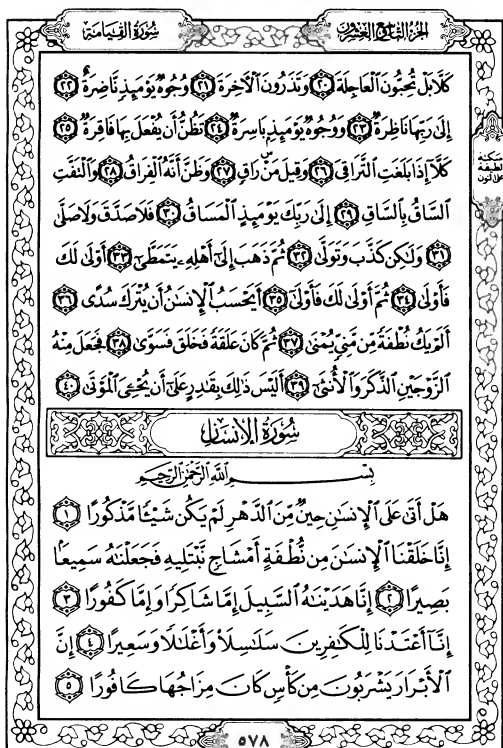 سُورَةُ القِيَامَة
الجزءُ التَّاسِعُ وَالعِشرُون
كَلَّا بَلْ تُحِبُّونَ ٱلْعَاجِلَةَ ٢٠ وَتَذَرُونَ ٱلْآخِرَةَ ٢١ وُجُوهٌ يَوْمَئِذٍ نَّاضِرَةٌ ٢٢
إِلَىٰ رَبِّهَا نَاظِرَةٌ ٢٣ وَوُجُوهٌ يَوْمَئِذٍۭ بَاسِرَةٌ ٢٤ تَظُنُّ أَن يُفْعَلَ بِهَا فَاقِرَةٌ ٢٥
كَلَّآ إِذَا بَلَغَتِ ٱلتَّرَاقِىَ ٢٦ وَقِيلَ مَنْۜ رَاقٍ ٢٧ وَظَنَّ أَنَّهُ ٱلْفِرَاقُ ٢٨ وَٱلْتَفَّتِ
ٱلسَّاقُ بِٱلسَّاقِ ٢٩ إِلَىٰ رَبِّكَ يَوْمَئِذٍ ٱلْمَسَاقُ ٣٠ فَلَا صَدَّقَ وَلَا صَلَّىٰ
٣١ وَلَٰكِن كَذَّبَ وَتَوَلَّىٰ ٣٢ ثُمَّ ذَهَبَ إِلَىٰٓ أَهْلِهِۦ يَتَمَطَّىٰٓ ٣٣ أَوْلَىٰ لَكَ
فَأَوْلَىٰ ٣٤ ثُمَّ أَوْلَىٰ لَكَ فَأَوْلَىٰٓ ٣٥ أَيَحْسَبُ ٱلْإِنسَٰنُ أَن يُتْرَكَ سُدًى ٣٦
أَلَمْ يَكُ نُطْفَةً مِّن مَّنِىٍّ يُمْنَىٰ ٣٧ ثُمَّ كَانَ عَلَقَةً فَخَلَقَ فَسَوَّىٰ ٣٨ فَجَعَلَ مِنْهُ
ٱلزَّوْجَيْنِ ٱلذَّكَرَ وَٱلْأُنثَىٰٓ ٣٩ أَلَيْسَ ذَٰلِكَ بِقَٰدِرٍ عَلَىٰٓ أَن يُحْۦِىَ ٱلْمَوْتَىٰ ٤٠
سُورَةُ الإِنسَان
بِسْمِ ٱللَّهِ ٱلرَّحْمَٰنِ ٱلرَّحِيمِ
هَلْ أَتَىٰ عَلَى ٱلْإِنسَٰنِ حِينٌ مِّنَ ٱلدَّهْرِ لَمْ يَكُن شَيْـًٔا مَّذْكُورًا ١
إِنَّا خَلَقْنَا ٱلْإِنسَٰنَ مِن نُّطْفَةٍ أَمْشَاجٍ نَّبْتَلِيهِ فَجَعَلْنَٰهُ سَمِيعًۢا
بَصِيرًا ٢ إِنَّا هَدَيْنَٰهُ ٱلسَّبِيلَ إِمَّا شَاكِرًا وَإِمَّا كَفُورًا ٣
إِنَّآ أَعْتَدْنَا لِلْكَٰفِرِينَ سَلَٰسِلَا۟ وَأَغْلَٰلًا وَسَعِيرًا ٤ إِنَّ
ٱلْأَبْرَارَ يَشْرَبُونَ مِن كَأْسٍ كَانَ مِزَاجُهَا كَافُورًا ٥
سكتة
لطيفة
على نون
٥٧٨